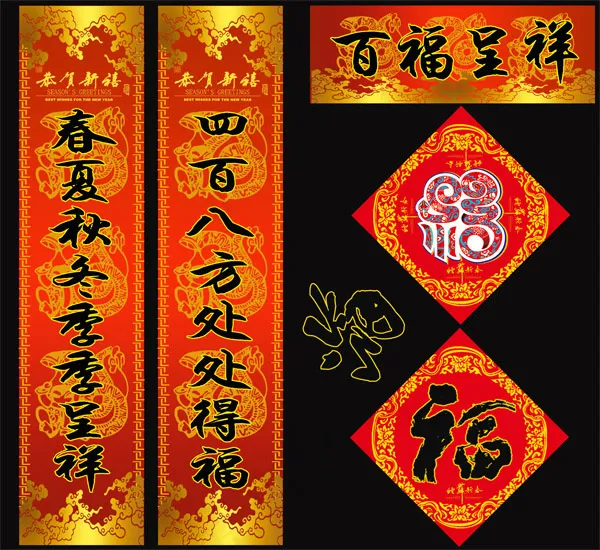 恭贺新禧
SEASON'S GREETINGS
BEST WISHES FOR THE NEW YEAR
春夏秋冬季季呈祥
恭贺新禧
SEASON'S GREETINGS
BEST WISHES FOR THE NEW YEAR
四百八方处处得福
百福呈祥
福
福